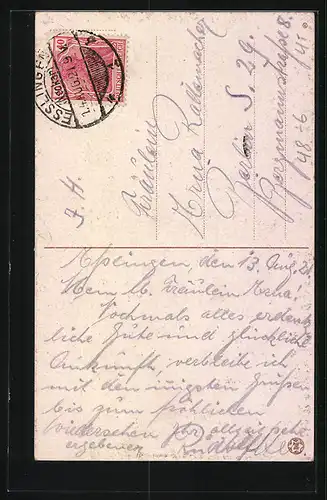 ESSLINGEN
F. H.
Fräulein
Erna Rademacher
Berlin S. 29.
Bergmannstraße 8.
48÷6
Esslingen, den 13. Aug. 21
Mein lb. Fräulein Erna!
Nochmals alles erdenk
liche Gute und glückliche
Ankunft, verbleibe ich
mit den innigsten Grüßen
bis zum fröhlichen
Wiedersehen Ihr
ergebener